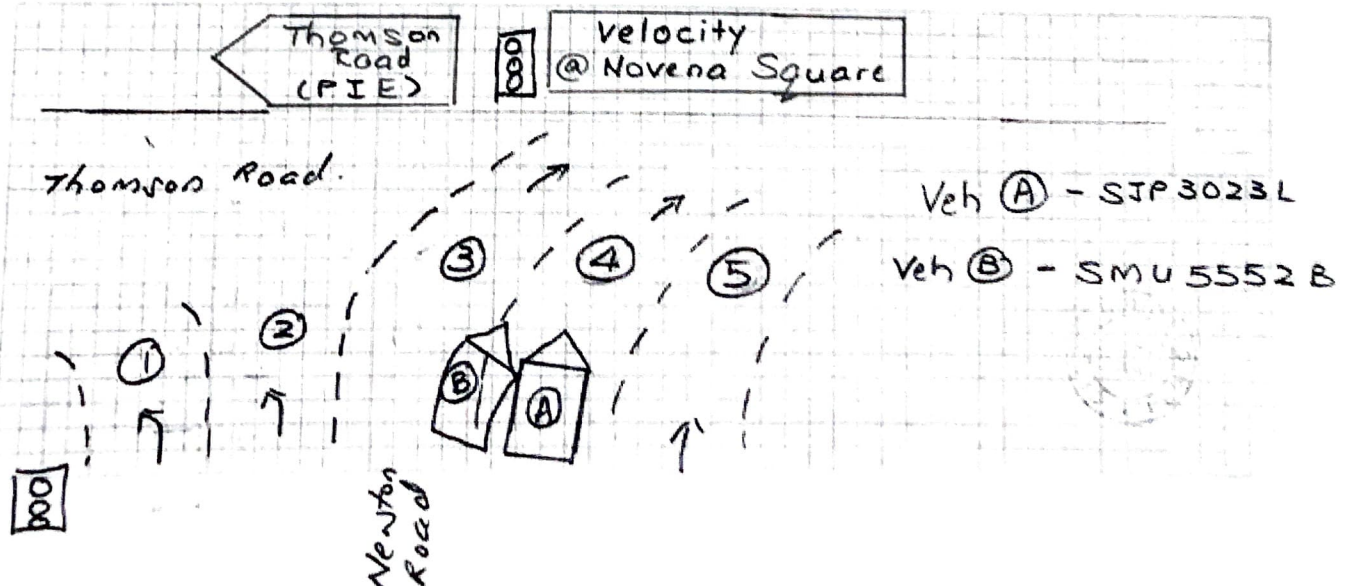 Thomson
Road
(PIE)
Velocity
@ Novena Square
Thomson Road.
Veh Ⓐ - SJP3023L
Veh Ⓑ - SMU5552B
①
②
③
④
⑤
Ⓑ
Ⓐ
Newton
Road